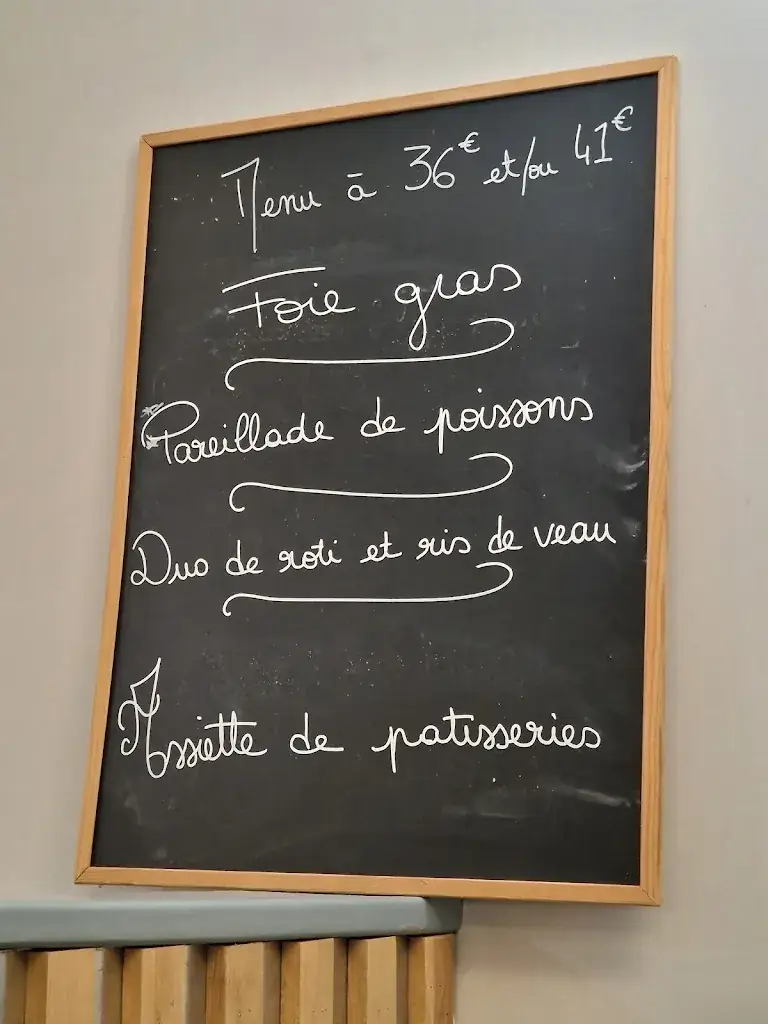 Menu à 36€ et/ou 41€
Foie gras
Pareillade de poissons
Duo de roti et ris de veau
Assiette de patisseries